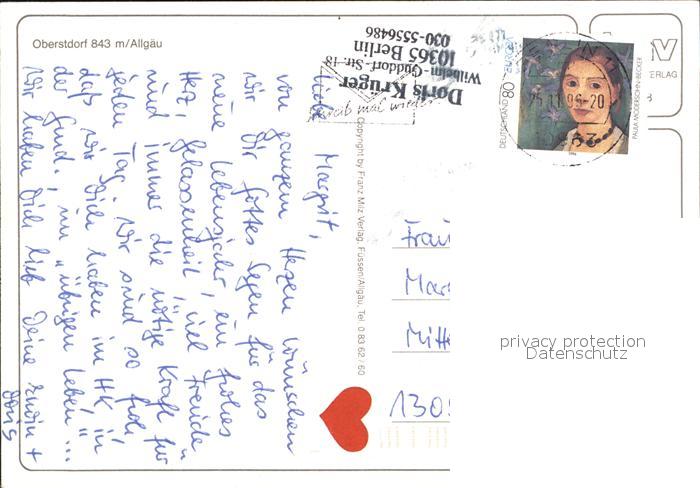 Oberstdorf 843 m/Allgäu
Liebe Margrit,
von ganzem Herzen wünschen
wir Dir Gottes Segen für das
neue Lebensjahr, ein frohes
Herz, Gelassenheit, viel Freude
und immer die nötige Kraft für
jeden Tag. Wir sind so froh,
daß wir Dich haben im HK in
der Gmd., im "übrigen Leben"...
Wir haben Dich lieb Deine Erwin +
Doris
Doris Krüger
Wilhelm-Guddorf-Str. 18
10365 Berlin
030-5556486
Schreib mal wieder
Copyright by Franz Milz Verlag, Füssen/Allgäu, Tel. 0 83 62 / 60
DEUTSCHLAND 80
EUROPA
PAULA MODERSOHN-BECKER
1996
25.11.96-20
63
V
ERLAG
Frau
Mar
Mitte
1305
privacy protection
Datenschutz